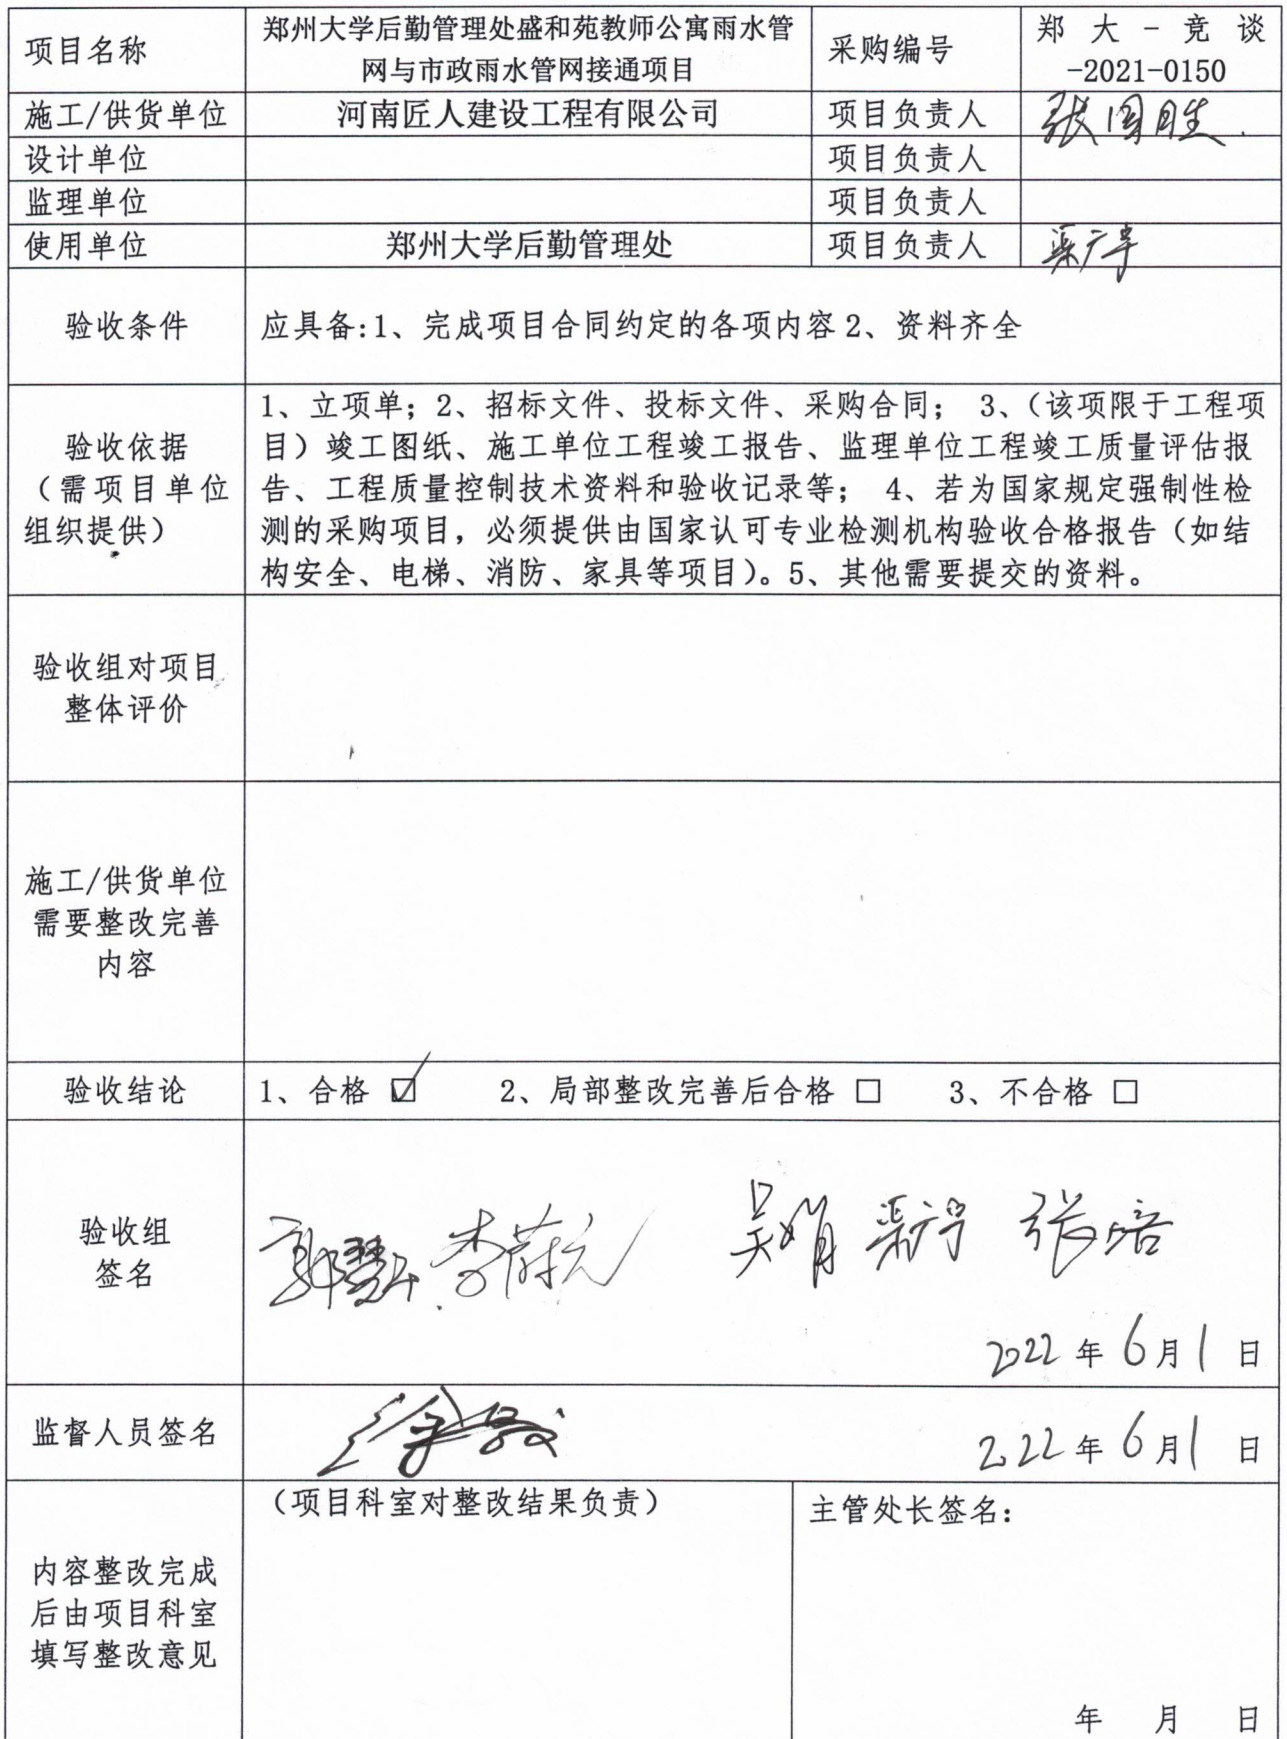 项目名称
郑州大学后勤管理处盛和苑教师公寓雨水管
网与市政雨水管网接通项目
采购编号
郑大-竞谈
-2021-0150
施工/供货单位
河南匠人建设工程有限公司
项目负责人
张国胜
设计单位
项目负责人
监理单位
项目负责人
使用单位
郑州大学后勤管理处
项目负责人
验收条件
应具备:1、完成项目合同约定的各项内容 2、资料齐全
验收依据
（需项目单位
组织提供）
1、立项单；2、招标文件、投标文件、采购合同； 3、（该项限于工程项
目）竣工图纸、施工单位工程竣工报告、监理单位工程竣工质量评估报
告、工程质量控制技术资料和验收记录等； 4、若为国家规定强制性检
测的采购项目，必须提供由国家认可专业检测机构验收合格报告（如结
构安全、电梯、消防、家具等项目）。5、其他需要提交的资料。
验收组对项目
整体评价
施工/供货单位
需要整改完善
内容
验收结论
1、合格 ☑ 2、局部整改完善后合格 □ 3、不合格 □
验收组
签名
吴娟 张培
2022 年 6 月 1 日
监督人员签名
2022 年 6 月 1 日
内容整改完成
后由项目科室
填写整改意见
（项目科室对整改结果负责）
主管处长签名：
年 月 日